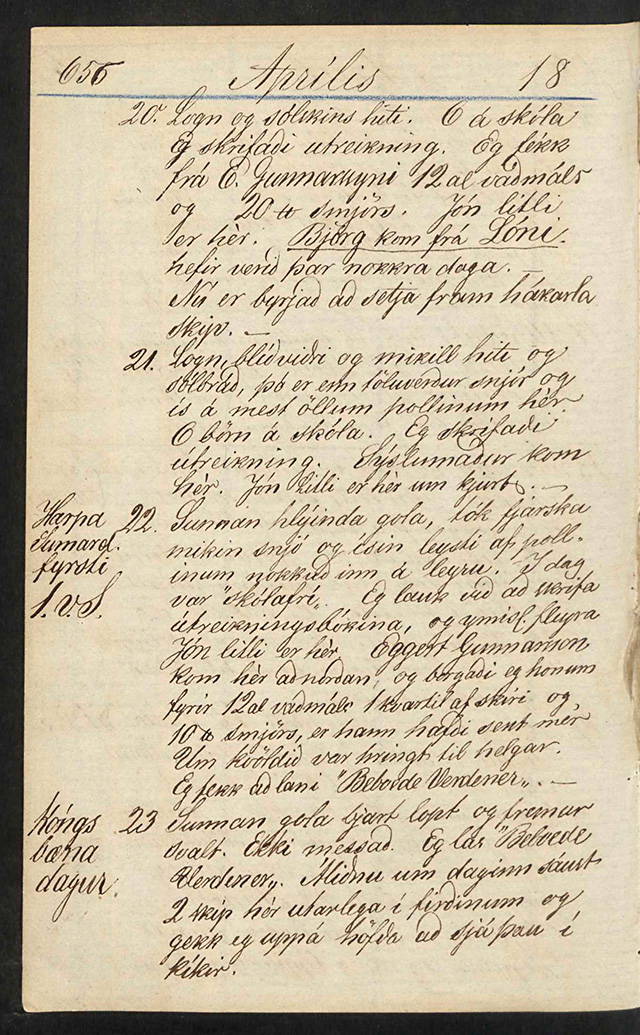 656 Aprílis 18
20. Logn og sólskins hiti. 6 á skóla
Eg skrifaði útreikning. Eg fékk
frá E. Gunnarssyni 12 al vaðmáls
og 20 ℔ smjörs. Jón litli
er hèr. Björg kom frá Lóni.
hefir verið þar nokkra daga. —
Nú er byrjað að setja fram hákarla
skip. —
21. Logn, blíðviðri og mikill hiti og
sólbráð, þó er enn töluverður snjór og
ís á mest öllum pollinum hér.
6 börn á skóla. Eg skrifaði
útreikning. Sýslumaður kom
hèr. Jón litli er hèr um kjurt. —
Harpa 22. Sunnan hlýinda gola, tók fjarska
Sumard. mikin snjó og ísin leysti af poll-
fyrsti inum nokkuð inn á leyru. I dag
1. v. S. var "skólafrí„. Eg lauk við að skrifa
útreikningsbókina, og ýmisl. fleyra
Jón litli er hèr. Eggert Gunnarson
kom hèr að norðan, og borgaði eg honum
fyrir 12 al vaðmáls 1 kvartil af skíri og
10 ℔ smjörs, er hann hafði sent mèr
Um kvöldið var hringt til helgar.
Eg fekk að láni "Beboede Verdener„. —
Kóngs 23 Sunnan gola bjart lopt og fremur
bæna svalt. Ekki messað. Eg las "Beboede
dagur. Verdener„. Miðju um daginn sáust
2 skip hér utarlega í firðinum og
gekk eg uppá höfða að sjá þau í
kíkir.